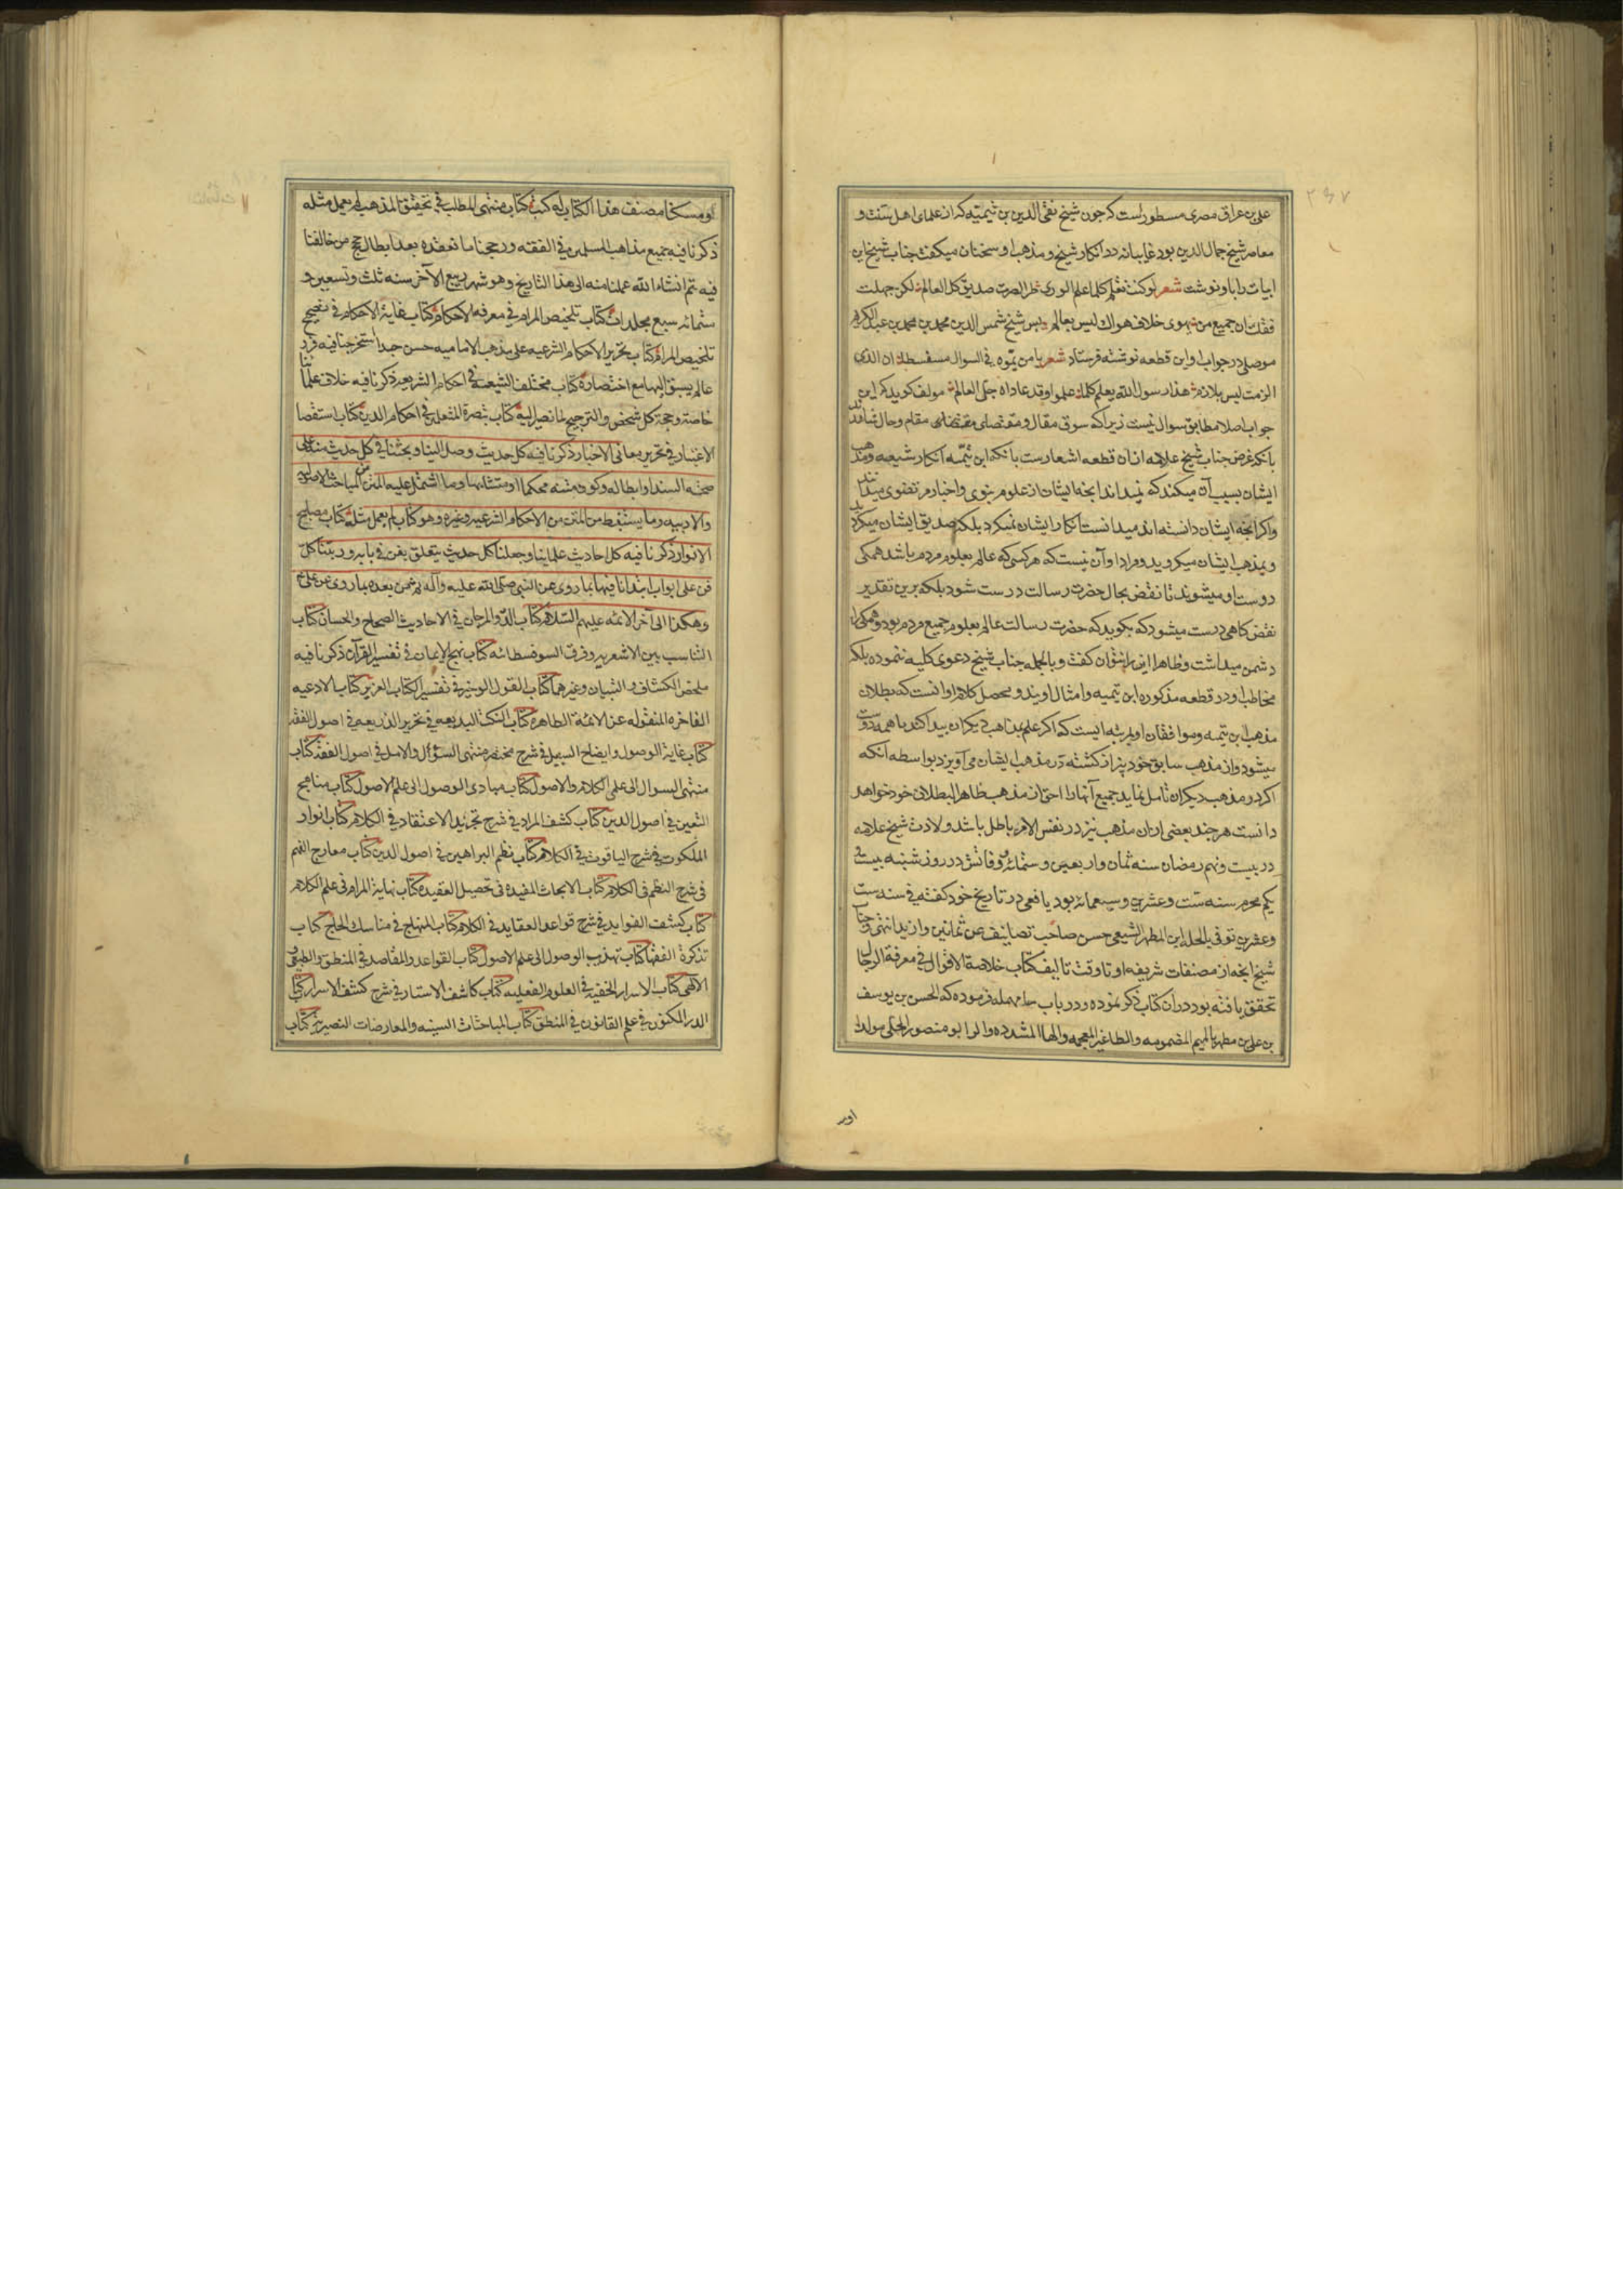 علی بن عراق مصری مسطور است که چون شیخ تقی الدین بن تیمیه که از علمای اهل سنت و
معاصر شیخ جمال الدین بود غایبانه در انکار شیخ و مذهب او سخنان میکفت جناب شیخ این
ابیات را باو نوشت شعر لو کنت تعلم کلما علم الوری طرا لصرت صدیق کل العالم لکن جهلت
فقلت ان جمیع من یهوی خلاف هواک لیس بعالم پس شیخ شمس الدین محمد بن محمد بن عبد الکریم
موصلی در جواب او این قطعه نوشته فرستاد شعر یا من یموه فی السوال مسفسطا ان الذی
الزمت لیس بلازم هذا رسول الله یعلم کلما علموا و قد عاداه جل العالم مولف کوید که این
جواب اصلا مطابق سوال نیست زیرا که سوق مقال و مقتضای مقام و حال
بانکه غرض جناب شیخ علامه از ان قطعه اشعارست بانکه ابن تیمیه انکار شیعه و مذهب
ایشان بسبب آن میکند که نمیداند انچه ایشان از علوم نبوی و اخبار مرتضوی میدانند
و اکر انچه ایشان دانسته اند میدانست انکار ایشان نمیکرد بلکه تصدیق ایشان میکرد
و بمذهب ایشان میکروید و مراد او آن نیست که هر کسی که عالم بعلوم مردم باشد همکی
دوست او میشوند تا نقض بحال حضرت رسالت درست شود بلکه برین تقدیر
نقض کاهی درست میشود که بکوید که حضرت رسالت عالم بعلوم جمیع مردم بود و همکی را
دشمن میداشت و ظاهرا این را نتوان کفت و بالجمله جناب شیخ دعوی کلیه ننموده بلکه
مخاطب او در قطعه مذکوره ابن تیمیه و امثال اویند و محصل کلام او انست که بطلان
مذهب ابن تیمیه و موافقان او بمرتبه ایست که اکر علم بمذاهب دیکران پیدا کند با همه دوست
میشود و از مذهب سابق خود بیزار کشته در مذهب ایشان می آویزد بواسطه آنکه
اکر در مذهب دیکران تامل نماید جمیع آنها را احق از مذهب ظاهر البطلان خود خواهد
دانست هر چند بعضی ازان مذهب نیز در نفس الامر باطل باشد ولادت شیخ علامه
در بیست و نهم رمضان سنه ثمان و اربعین و ستمائه و وفاتش در روز شنبه بیست و
یکم محرم سنه ست و عشرین و سبعمائه بود یافعی در تاریخ خود کفته فی سنه ست
و عشرین توفی بالحلة ابن المطهر الشیعی حسن صاحب تصانیف عن ثمانین و ازید انتهی و جناب
شیخ انچه از مصنفات شریفه او تا وقت تالیف کتاب خلاصة الاقوال فی معرفة الرجال
تحقق یافته بود در ان کتاب ذکر نموده و در باب حاء مهمله فرموده که الحسن بن یوسف
بن علی بن مطهر بالمیم المضمومه و الطا غیر المعجمه و الها المشدده و الرا ابو منصور الحلی مولدا
او
و مسکنا مصنف هذا الکتاب له کتب کتاب منتهی المطلب فی تحقیق المذهب لم یعمل مثله
ذکرنا فیه جمیع مذاهب المسلمین فی الفقه و رجحنا ما نعتقده بعد ابطال حجج من خالفنا
فیه تم انشاء الله عملنا منه الی هذا التاریخ و هو شهر ربیع الآخر سنه ثلث و تسعین و
ستمائه سبع مجلدات کتاب تلخیص المرام فی معرفه الاحکام کتاب غایة الاحکام فی تصحیح
تلخیص المرام کتاب تحریر الاحکام الشرعیه علی مذهب الامامیه حسن جدا استخرجنا فیه فروعا
عالم یسبق الیها مع اختصاره کتاب مختلف الشیعه فی احکام الشریعه ذکرنا فیه خلاف علمائنا
خاصة و حجة کل شخص و الترجیح لما نصیر الیه کتاب تبصرة المتعلمین فی احکام الدین کتاب استقصا
الاعتبار فی تحریر معانی الاخبار ذکرنا فیه کل حدیث وصل الینا و بحثنا فی کل حدیث منه علی
صحة السند او ابطاله و کون متنه محکما او متشابها و ما اشتمل علیه المتن من المباحث الاصولیه
و الادبیه و ما یستنبط من المتن من الاحکام الشرعیه و غیره و هو کتاب لم یعمل مثله کتاب مصابیح
الانوار ذکرنا فیه کل احادیث علمائنا و جعلنا کل حدیث یتعلق بفن فی بابه و رتبنا کل
فن علی ابواب ابتدانا فیها بما روی عن النبی صلی الله علیه و آله ثم من بعده بما روی عن علی ع
و هکذا الی آخر الائمه علیهم السلام کتاب الدر و المرجان فی الاحادیث الصحاح و الحسان کتاب
التناسب بین الاشعریه و فرق السوفسطائه کتاب نهج الایمان فی تفسیر القرآن ذکرنا فیه
ملخص الکشاف و التبیان و غیرهما کتاب القول الوجیز فی تفسیر الکتاب العزیز کتاب الادعیه
الفاخره المنقوله عن الائمة الطاهره کتاب النکت البدیعه فی تحریر الذریعه فی اصول الفقه
کتاب غایة الوصول و ایضاح السبیل فی شرح مختصر منتهی السؤال و الامل فی اصول الفقه کتاب
منتهی السوال الی علمی الکلام و الاصول کتاب مبادی الوصول الی علم الاصول کتاب مناهج
الیقین فی اصول الدین کتاب کشف المراد فی شرح تجرید الاعتقاد فی الکلام کتاب انوار
الملکوت فی شرح الیاقوت فی الکلام کتاب نظم البراهین فی اصول الدین کتاب معارج الفهم
فی شرح النظم فی الکلام کتاب الابحاث المفیده فی تحصیل العقیده کتاب نهایة المرام فی علم الکلام
کتاب کشف الفواید فی شرح قواعد العقاید فی الکلام کتاب المنهاج فی مناسک الحاج کتاب
تذکرة الفقها کتاب تهذیب الوصول الی علم الاصول کتاب القواعد و المقاصد فی المنطق و الطبیعی و
الالهی کتاب الاسرار الخفیه فی العلوم العقلیه کتاب کاشف الاستار فی شرح کشف الاسرار کتاب
الدر المکنون فی علم القانون فی المنطق کتاب المباحثات السنیه و المعارضات النصیریه کتاب